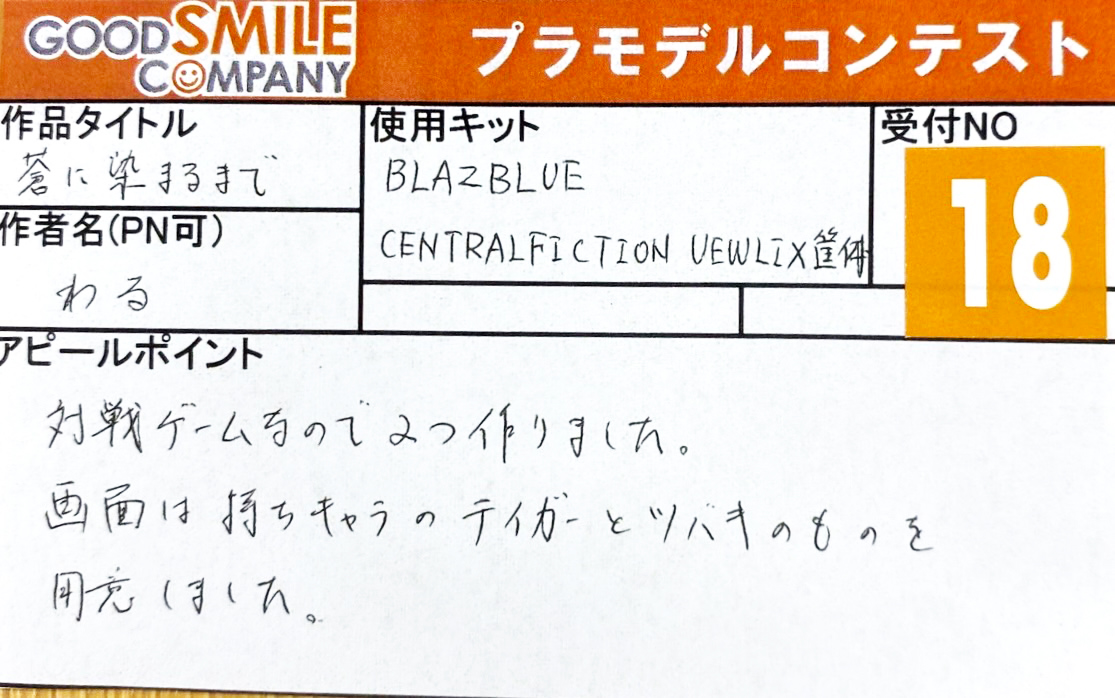 GOODSMILE
COMPANY
プラモデルコンテスト
作品タイトル
蒼に染まるまで
使用キット
BLAZBLUE
CENTRALFICTION VEWLIX筐体
受付NO
18
作者名(PN可)
わる
アピールポイント
対戦ゲームなので2つ作りました。
画面は持ちキャラのテイガーとツバキのものを
用意しました。